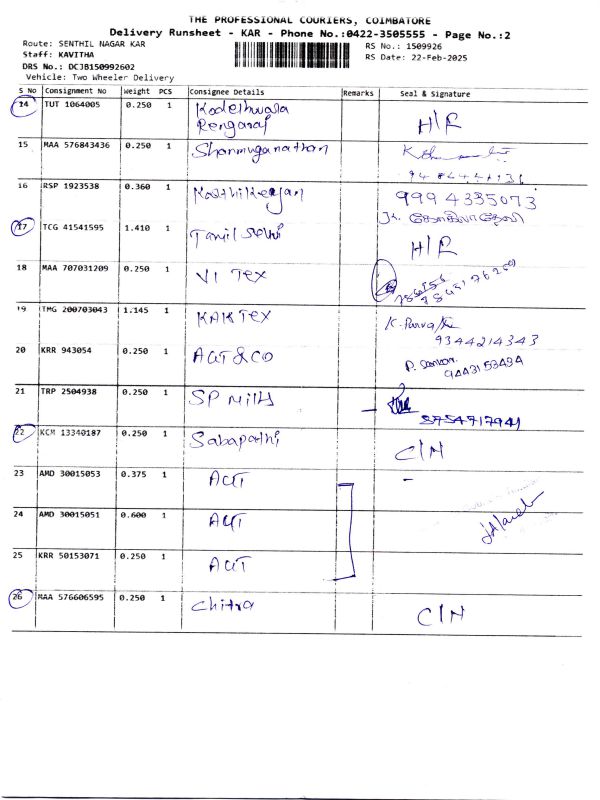 THE PROFESSIONAL COURIERS, COIMBATORE
Delivery Runsheet - KAR - Phone No.:0422-3505555 - Page No.:2
Route: SENTHIL NAGAR KAR
Staff: KAVITHA
DRS No.: DCJB150992602
Vehicle: Two Wheeler Delivery
RS No.: 1509926
RS Date: 22-Feb-2025
S No Consignment No Weight PCS Consignee Details Remarks Seal & Signature
14 TUT 1064005 0.250 1 Kodeshwara
Rengaraj H/R
15 MAA 576843436 0.250 1 Shanmuganathan
16 RSP 1923538 0.360 1 Karthikeyan 9994335073
17 TCG 41541595 1.410 1 Tamil selvi H/R
18 MAA 707031209 0.250 1 VI TEX
19 TMG 200703043 1.145 1 KAKTEX K. Parvathi
9344214343
20 KRR 943054 0.250 1 AGT & CO
9443153434
21 TRP 2504938 0.250 1 SP Mills
8754717941
22 KCM 13340187 0.250 1 Sabapathi C/N
23 AMD 30015053 0.375 1 AGT
24 AMD 30015051 0.600 1 AGT
25 KRR 50153071 0.250 1 AGT
26 MAA 576606595 0.250 1 Chitra C/N